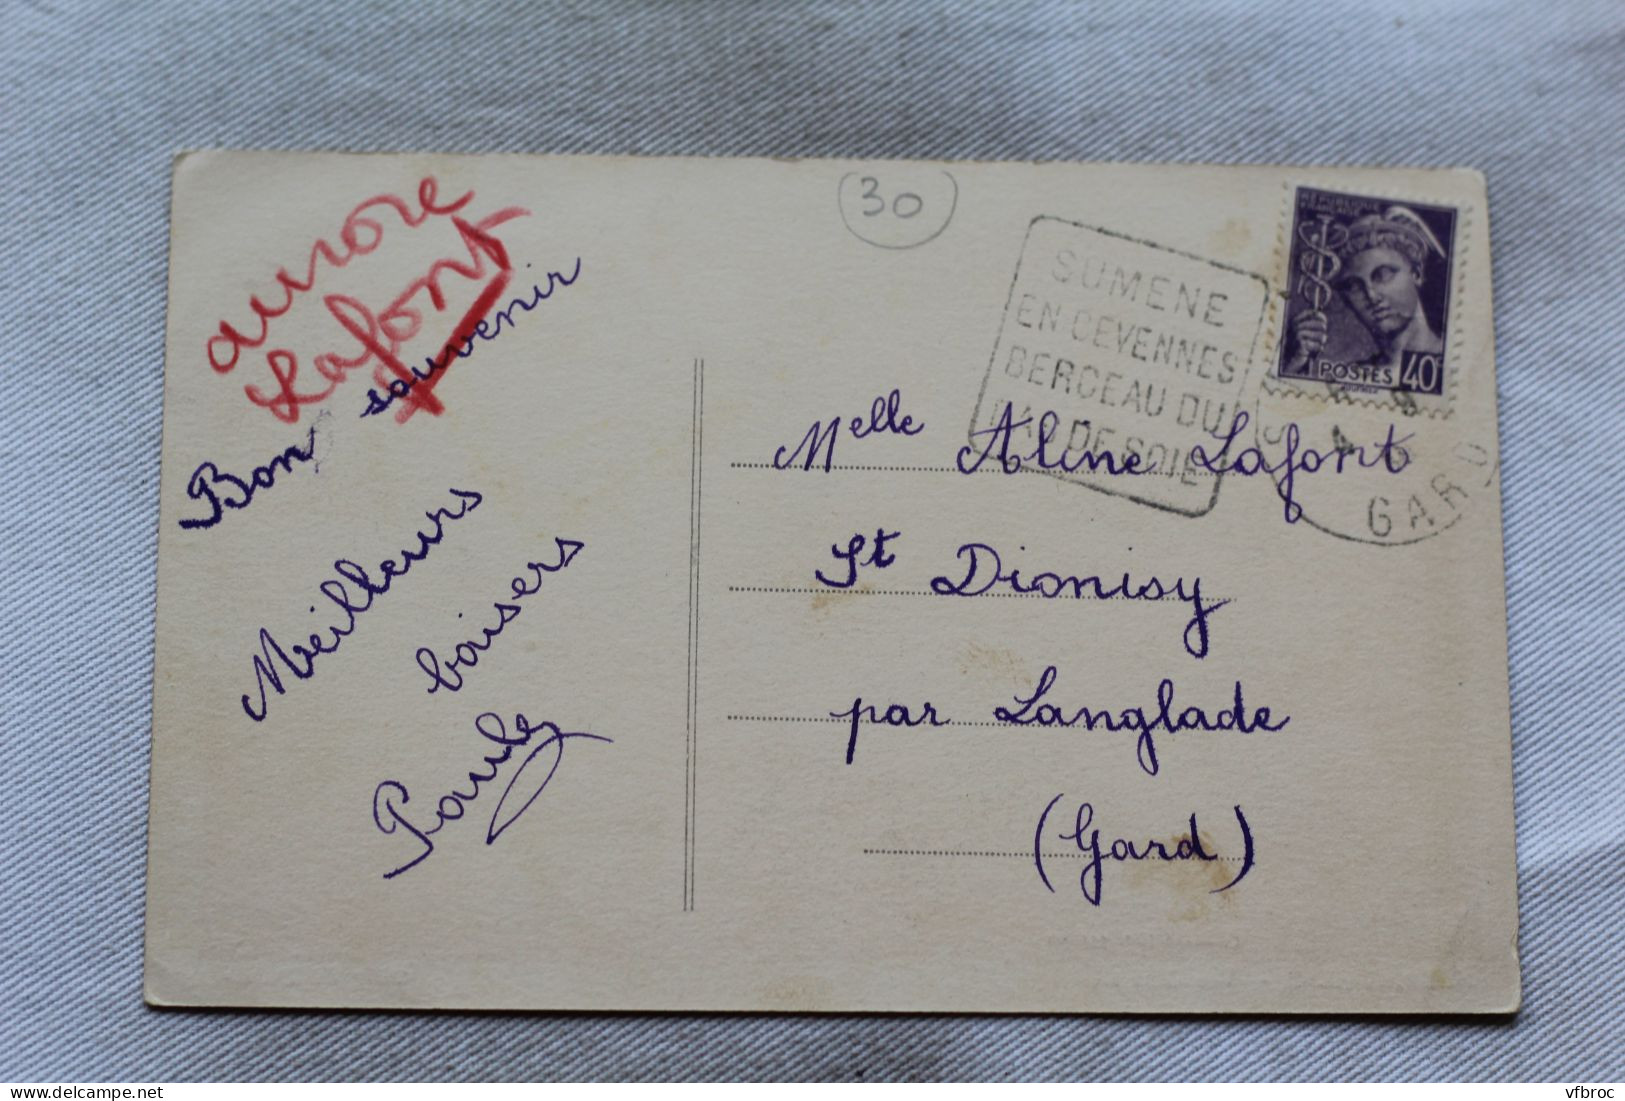 aurore
Lafont
Bon souvenir
Meilleurs
baisers
(30)
SUMENE
EN CEVENNES
BERCEAU DU
BAS DE SOIE
REPUBLIQUE
FRANÇAISE
POSTES 40c
GARD
Melle Aline Lafont
St Dionisy
par Langlade
(Gard)
vfbroc